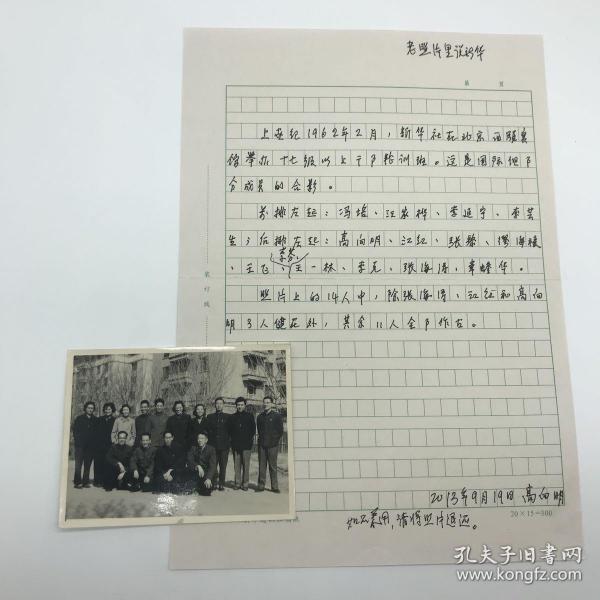 老照片里说新华
第 页
上世纪1962年2月，新华社在北京西颐宾
馆举办十七级以上干部轮训班。这是国际组部
分成员的合影。
前排左起：冯 、汪家桦、李延宁、李芸
生；后排左起：高向明、江红、张黎、缪海稜
李芬、
、王飞、王一林、李元、张海涛、韦 华。
照片上的14人中，除张海涛、江红和高向
明3人健在外，其余11人全部作古。
装订线
2013年9月19日 高向明
20×15=300
如不采用，请将照片退还。
孔夫子旧书网
www.kongfz.com